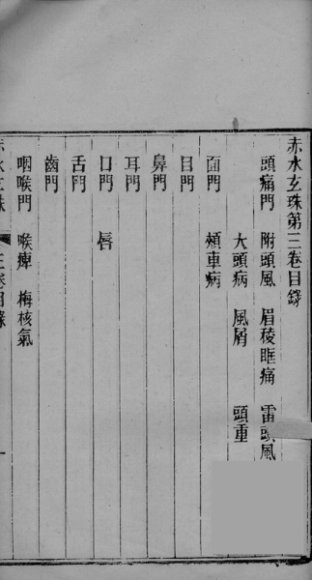 赤水玄珠第三卷目錄
頭痛門 附頭風 眉稜眶痛 雷頭風
大頭病 風屑 頭重
面門 頰車病
目門
鼻門
耳門
口門 唇
舌門
齒門
咽喉門 喉痺 梅核氣
赤水玄珠 三卷目錄 一